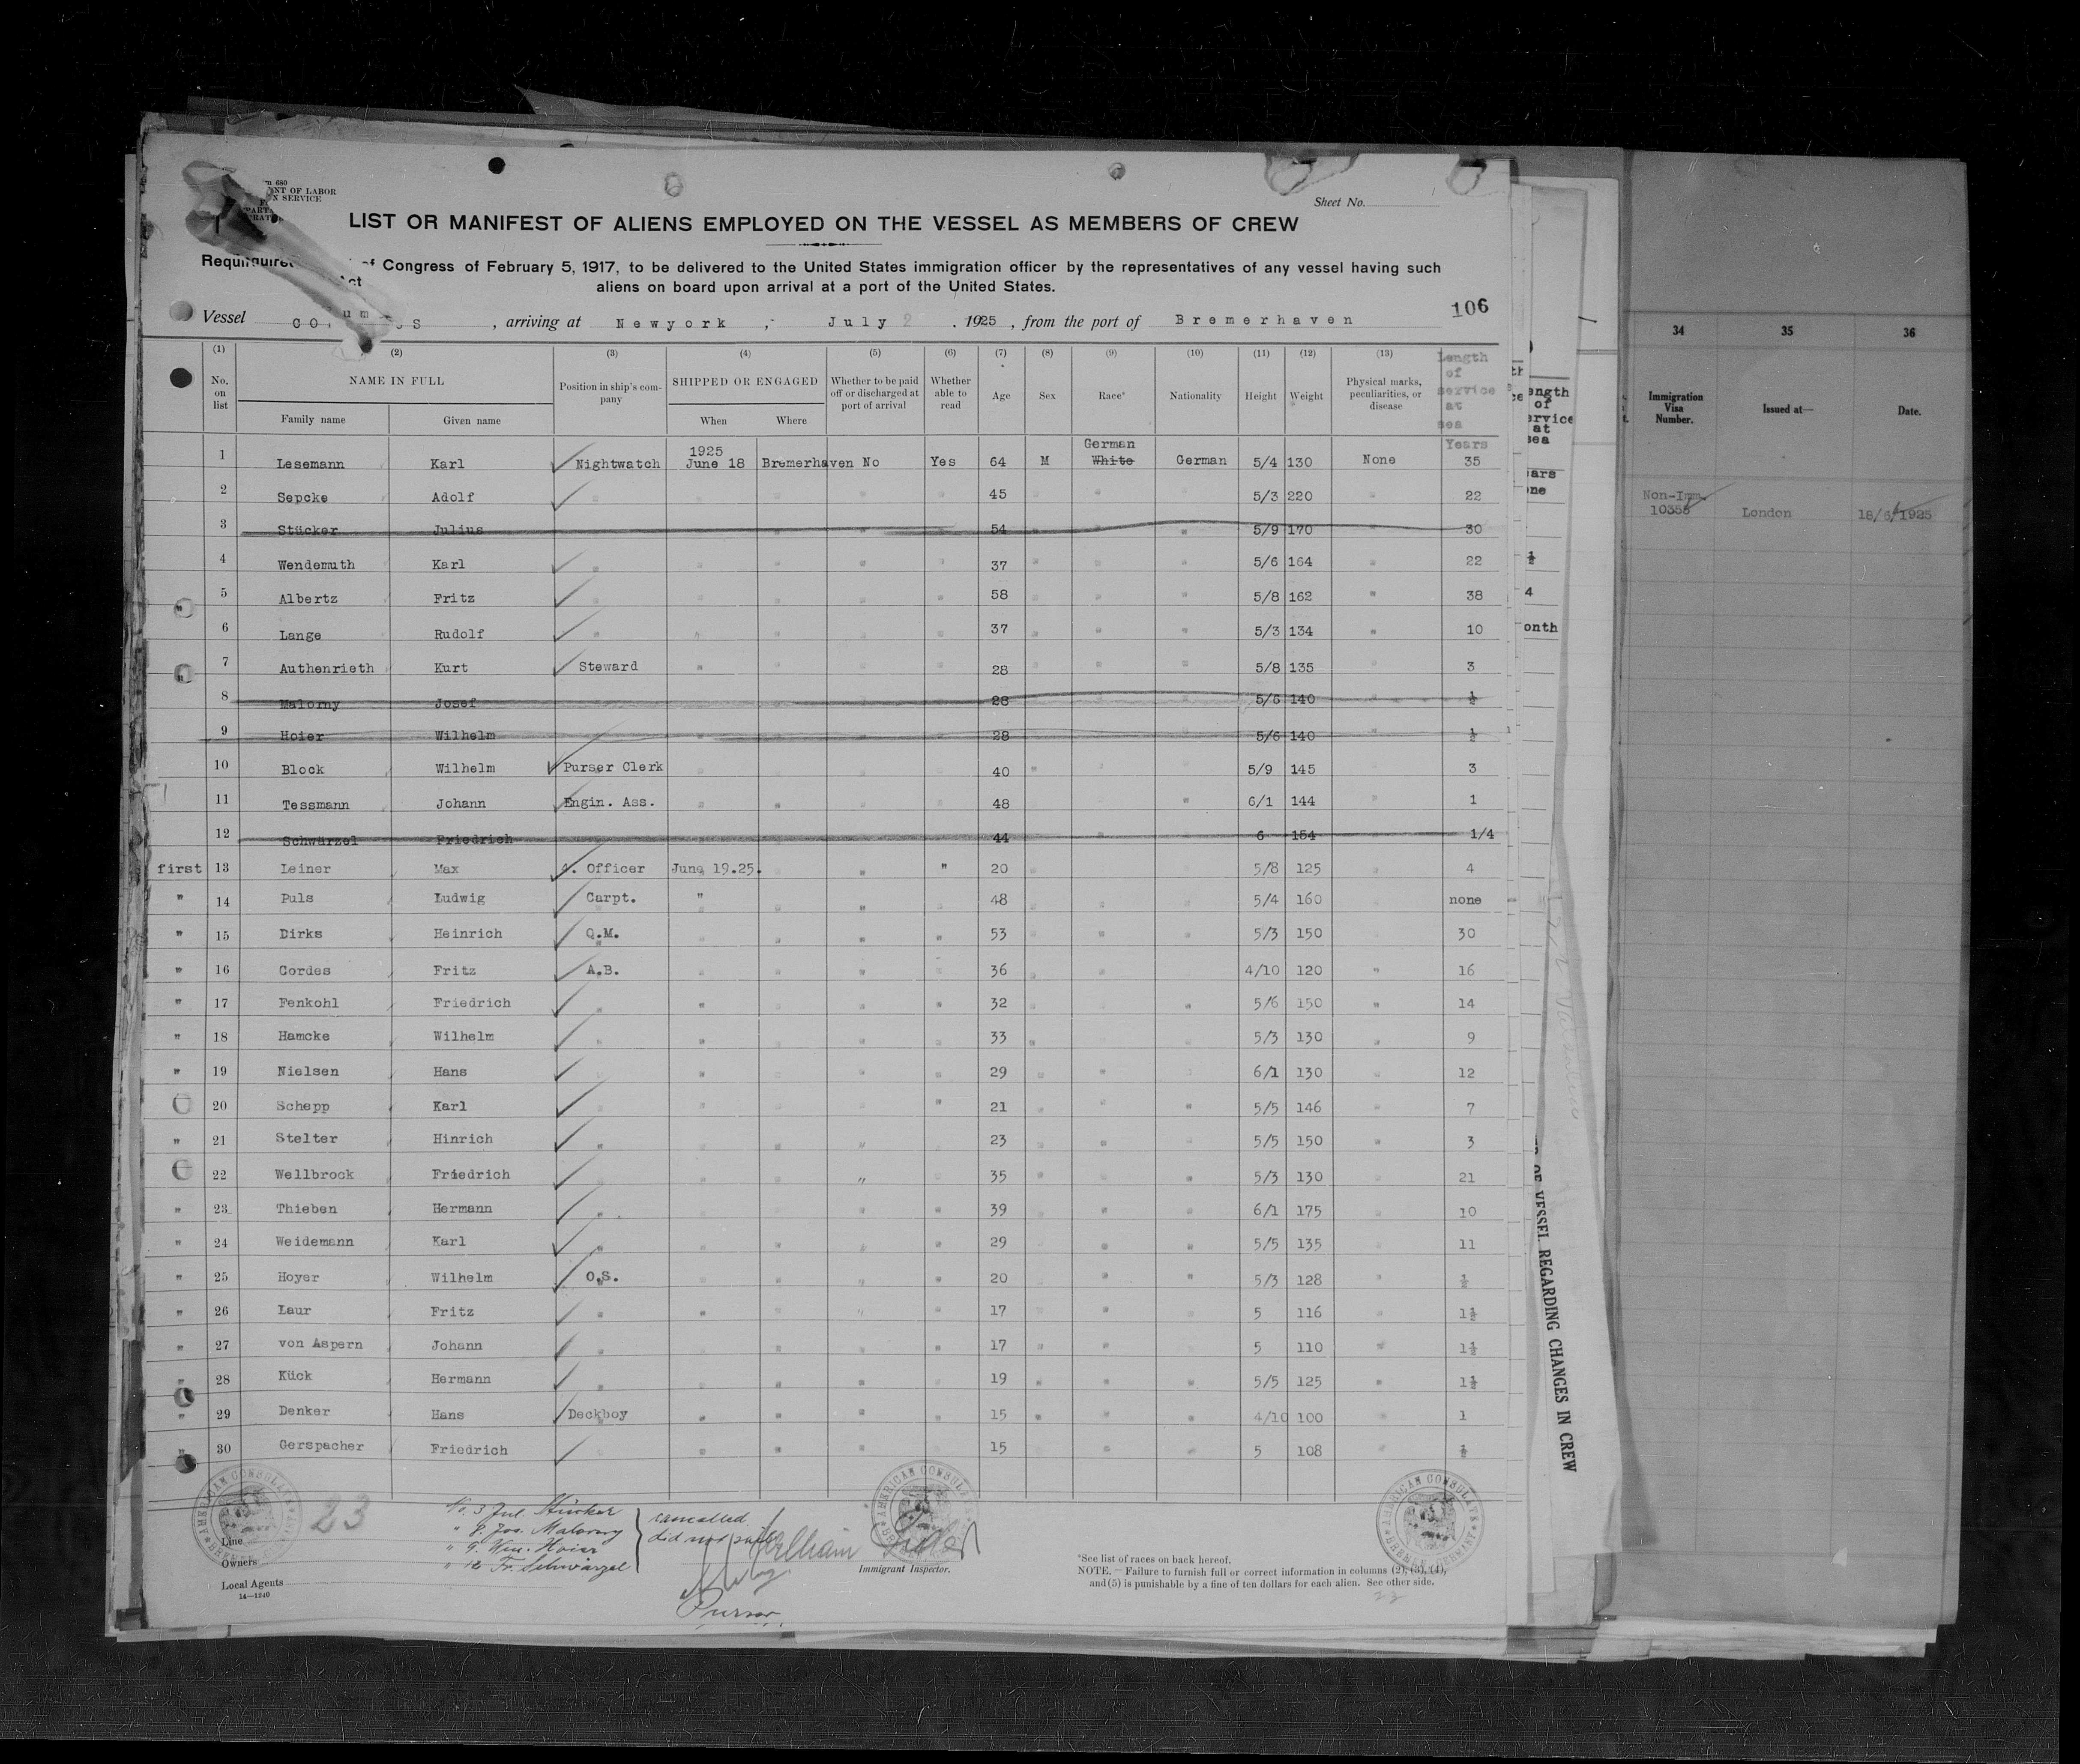 Sheet No.
LIST OR MANIFEST OF ALIENS EMPLOYED ON THE VESSEL AS MEMBERS OF CREW
of Congress of February 5, 1917, to be delivered to the United States immigration officer by the representatives of any vessel having such
aliens on board upon arrival at a port of the United States.
106
Vessel , arriving at Newyork , July 2 , 1925 , from the port of Bremerhaven
(1) (2) (3) (4) (5) (6) (7) (8) (9) (10) (11) (12) (13) Length of service at sea
No. on list NAME IN FULL Position in ship's company SHIPPED OR ENGAGED Whether to be paid off or discharged at port of arrival Whether able to read Age Sex Race* Nationality Height Weight Physical marks, peculiarities, or disease
Family name Given name When Where
1925 German Years
1 Lesemann Karl Nightwatch June 18 Bremerhaven No Yes 64 M White German 5/4 130 None 35
2 Sepcke Adolf " 45 5/3 220 22
3 Stücker Julius 54 5/9 170 30
4 Wendemuth Karl " 37 5/6 164 22
5 Albertz Fritz " 58 5/8 162 " 38
6 Lange Rudolf " 37 5/3 134 " 10
7 Authenrieth Kurt Steward " 28 5/8 135 3
8 Malorny Josef 28 5/6 140 ½
9 Hoier Wilhelm 28 5/6 140 ½
10 Block Wilhelm Purser Clerk 40 5/9 145 3
11 Tessmann Johann Engin. Ass. 48 6/1 144 1
12 Schwärzel Friedrich 44 6 154 1/4
first 13 Leiner Max 4. Officer June 19.25. " " 20 5/8 125 4
" 14 Puls Ludwig Carpt. " 48 5/4 160 none
" 15 Dirks Heinrich Q.M. 53 5/3 150 30
" 16 Cordes Fritz A.B. 36 4/10 120 " 16
" 17 Fenkohl Friedrich " 32 5/6 150 " 14
" 18 Hamcke Wilhelm " 33 5/3 130 " 9
" 19 Nielsen Hans 29 6/1 130 12
20 Schepp Karl 21 5/5 146 " 7
" 21 Stelter Hinrich " 23 5/5 150 " 3
22 Wellbrock Friedrich " 35 5/3 130 21
" 23 Thieben Hermann " 39 6/1 175 10
" 24 Weidemann Karl " 29 5/5 135 11
" 25 Hoyer Wilhelm O.S. 20 5/3 128 " ½
" 26 Laur Fritz " 17 5 116 1½
" 27 von Aspern Johann " 17 5 110 " 1½
" 28 Kück Hermann " 19 5/5 125 " 1½
" 29 Denker Hans Deckboy 15 4/10 100 1
" 30 Gerspacher Friedrich 15 5 108 ½
23
No. 3 Jul. Stücker
" 8. Jos. Malorny
" 9. Wm. Hoier
" 12 Fr. Schwärzel
cancelled
did not sail
Purser
AMERICAN CONSULATE
BREMEN, GERMANY
Line
Owners
Local Agents
14—1240
Immigrant Inspector.
*See list of races on back hereof.
NOTE.—Failure to furnish full or correct information in columns (2), (3), (4),
and (5) is punishable by a fine of ten dollars for each alien. See other side.
OF VESSEL REGARDING CHANGES IN CREW
34 35 36
Immigration Visa Number. Issued at— Date.
Non-Imm.
10358 London 18/6/1925